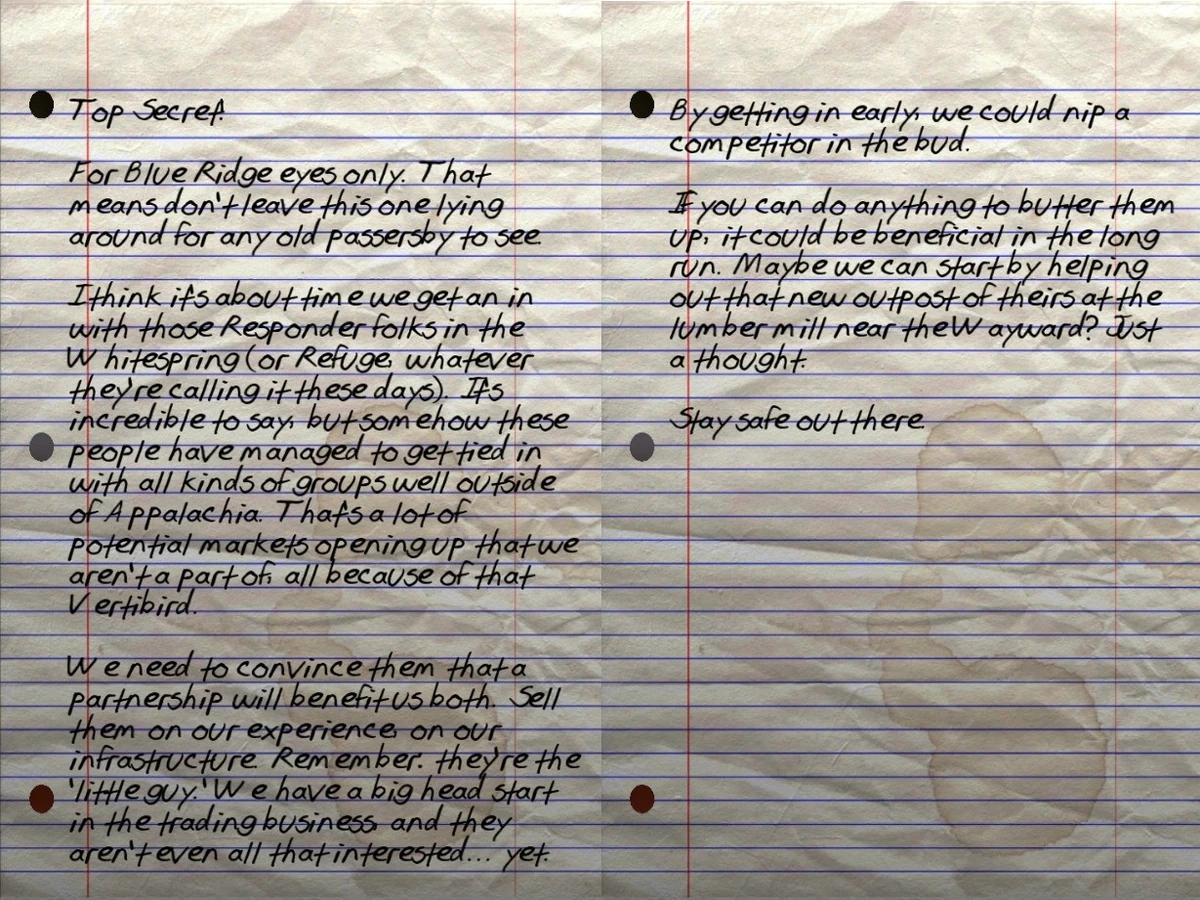 Top Secret!
For Blue Ridge eyes only. That
means don't leave this one lying
around for any old passersby to see.
I think it's about time we get an in
with those Responder folks in the
Whitespring (or Refuge, whatever
they're calling it these days). It's
incredible to say, but somehow these
people have managed to get tied in
with all kinds of groups well outside
of Appalachia. That's a lot of
potential markets opening up that we
aren't a part of, all because of that
Vertibird.
We need to convince them that a
partnership will benefit us both. Sell
them on our experience, on our
infrastructure. Remember: they're the
'little guy.' We have a big head start
in the trading business, and they
aren't even all that interested... yet.
By getting in early, we could nip a
competitor in the bud.
If you can do anything to butter them
up, it could be beneficial in the long
run. Maybe we can start by helping
out that new outpost of theirs at the
lumber mill near the Wayward? Just
a thought.
Stay safe out there.